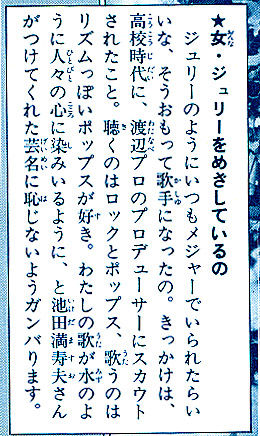 ★女・ジュリーをめざしているの
ジュリーのようにいつもメジャーでいられたらい
いな、そうおもって歌手になったの。きっかけは、
高校時代に、渡辺プロのプロデューサーにスカウト
されたこと。聴くのはロックとポップス、歌うのは
リズムっぽいポップスが好き。わたしの歌が水のよ
うに人々の心に染みいるように、と池田満寿夫さん
がつけてくれた芸名に恥じないようガンバります。